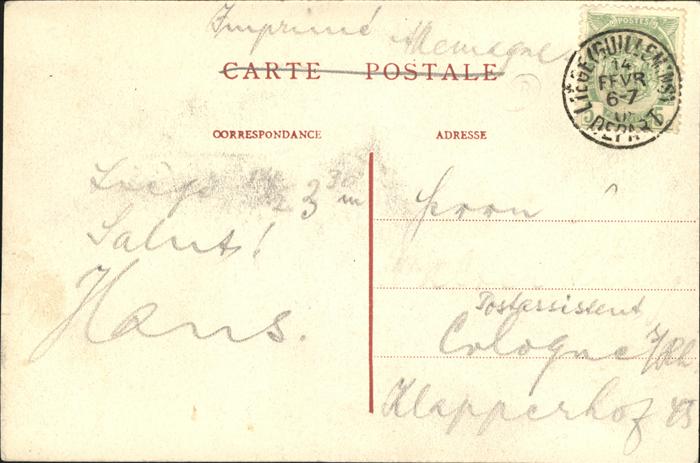 Imprimé Allemagne
CARTE POSTALE
POSTES
LIÉGE (GUILLEMINS)
14
FEVR
6-7
DEPART
CORRESPONDANCE
ADRESSE
Liége 14 2 3 30 m
Salut!
Hans.
Herrn
Postassistent
Cologne s/Rh
Klapperhof 45